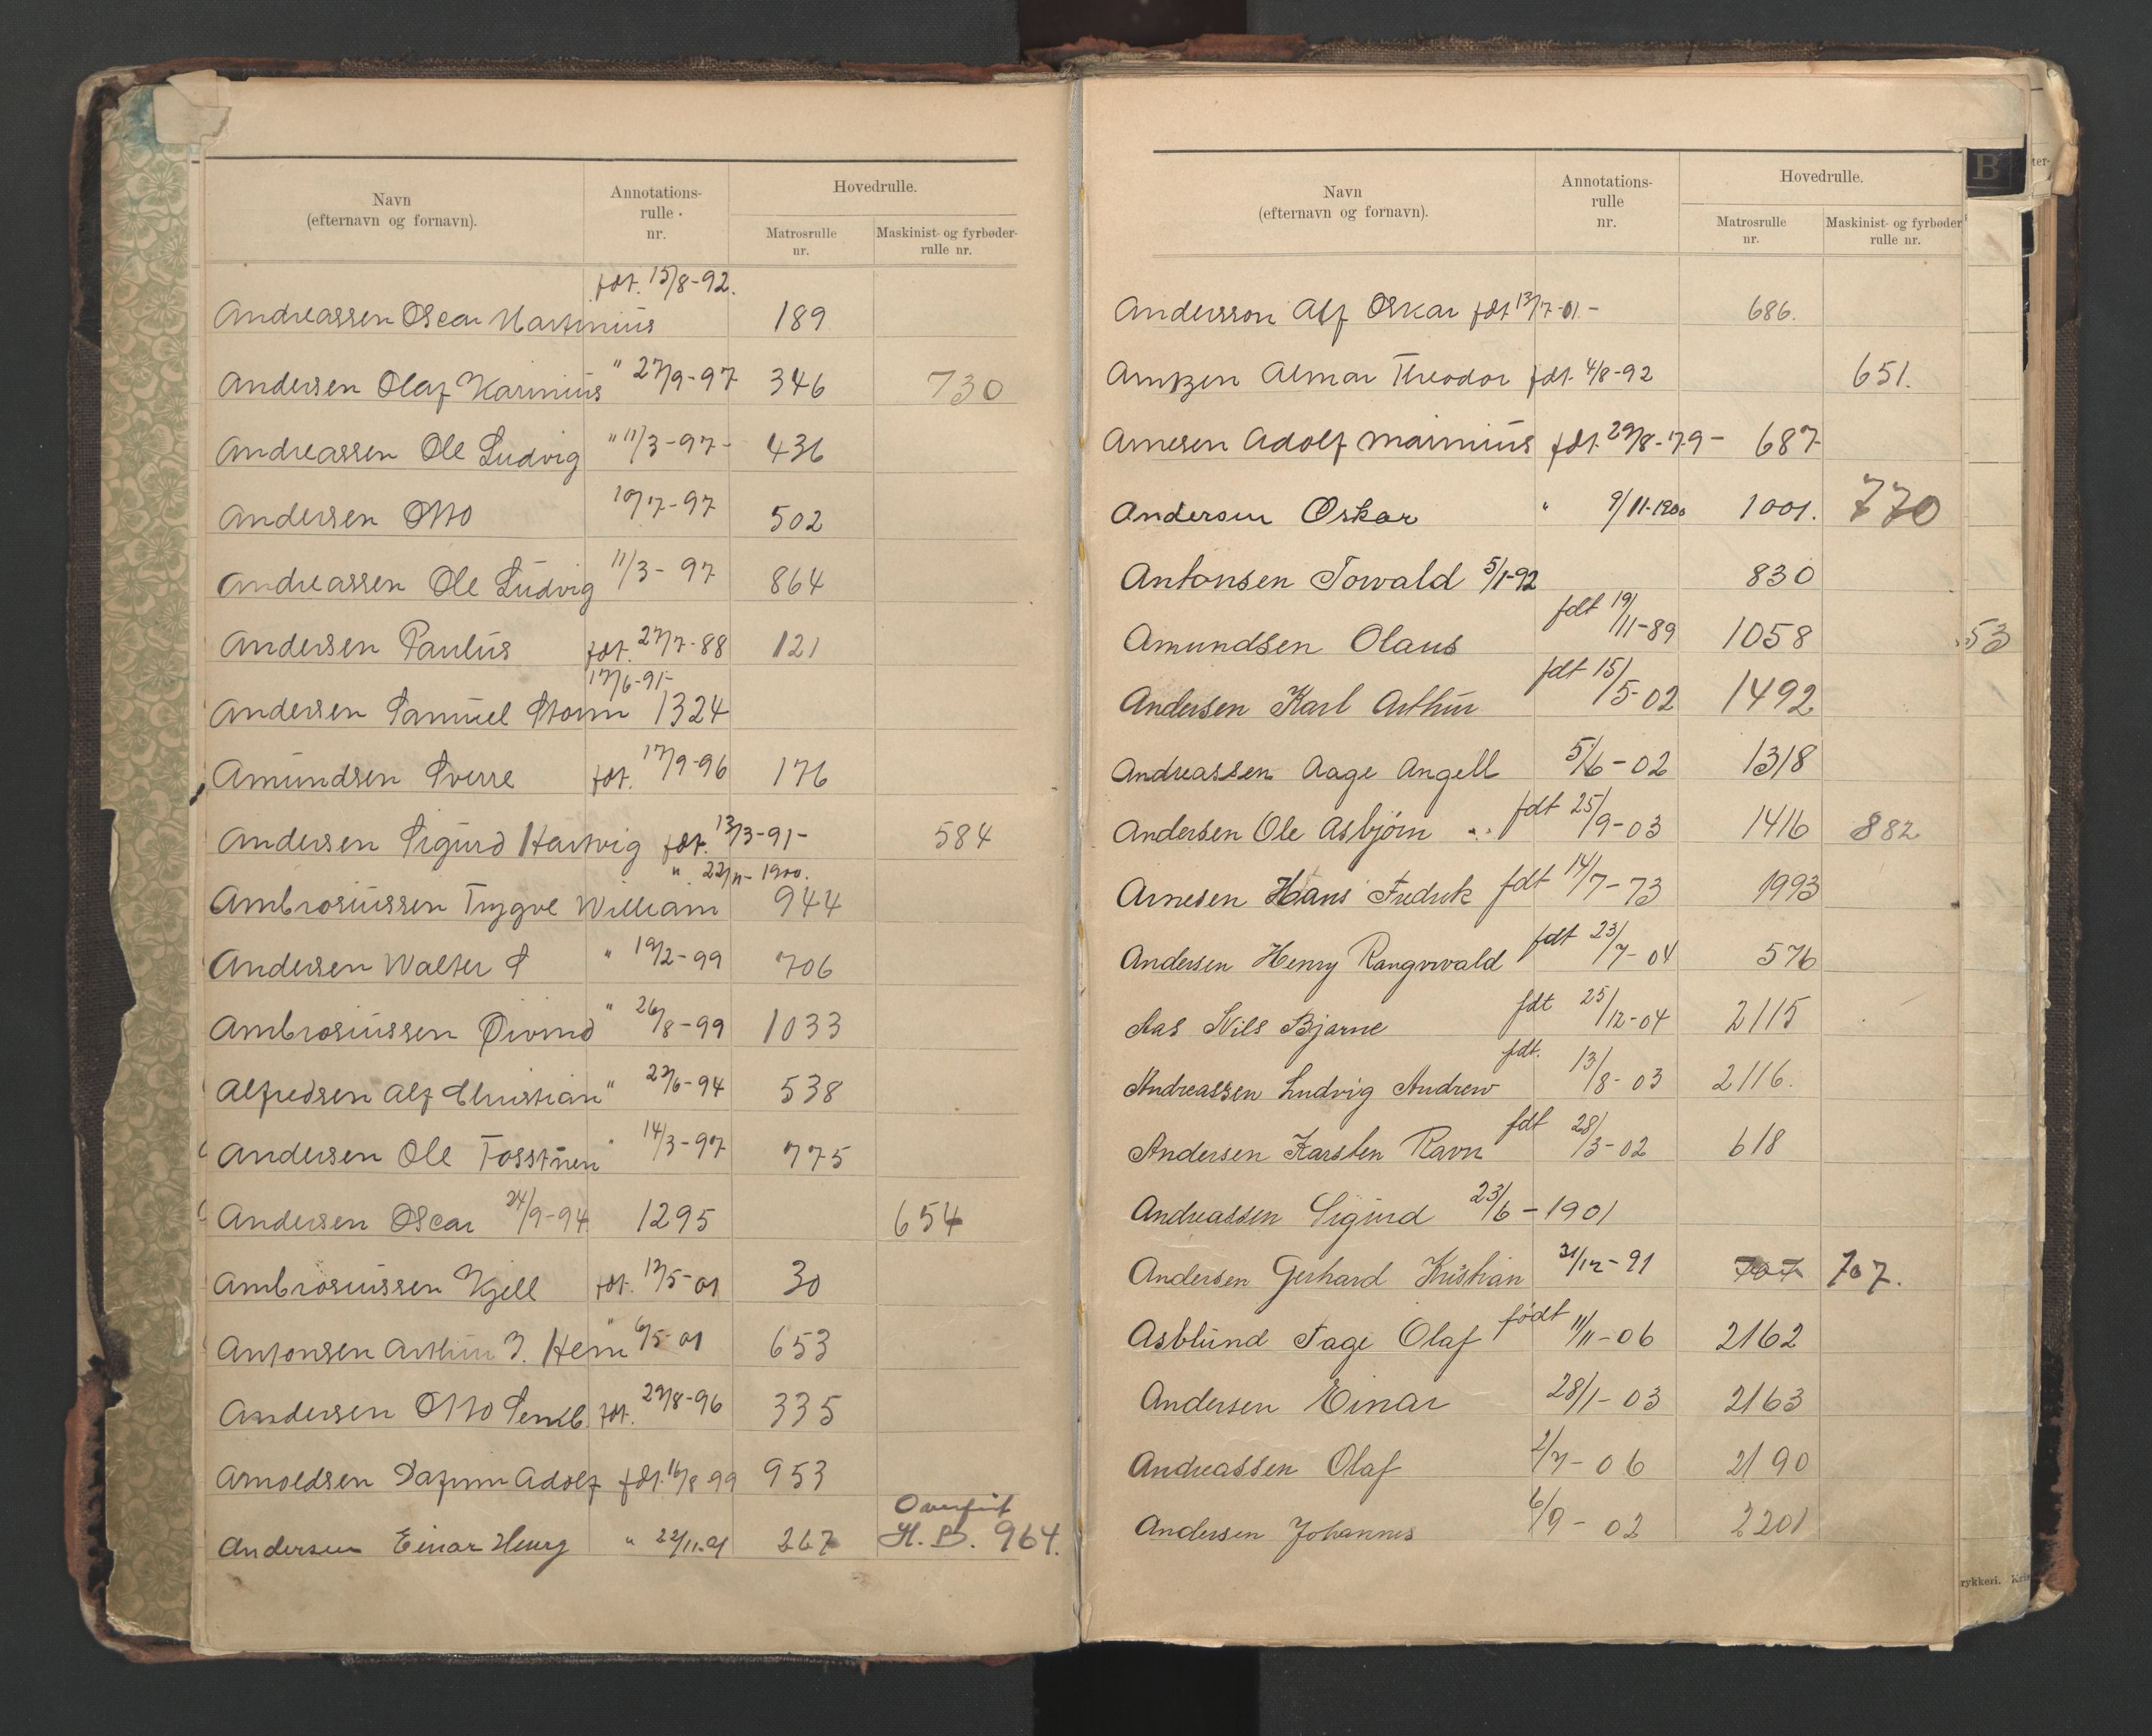 Navn
(efternavn og fornavn).
Annotations-
rulle
nr.
Hovedrulle.
Matrosrulle
nr.
Maskinist- og fyrbøder-
rulle nr.
fdt. 15/8-92.
Andreassen Oscar Martinius 189
Andersen Olaf Karinius " 27/9-97 346 730
Andreassen Ole Ludvig " 11/3-97- 436
Andersen Otto 10/7-97 502
Andreassen Ole Ludvig 11/3-97 864
Andersen Paulus fdt. 27/7-88 121
17/6-91-
Andersen Samuel Storm 1324
Amundsen Sverre fdt. 17/9-96 176
Andersen Sigurd Hartvig fdt. 13/3-91- 584
" 22/11-1900.
Ambrosiussen Trygve William 944
Andersen Walter S " 19/2-99 706
Ambrosiussen Øivind " 26/8-99 1033
Alfredsen Alf Christian " 22/6-94 538
Andersen Ole " 14/3-97 775
Andersen Oscar 24/9-94 1295 654
Ambrosiussen Kjell fdt. 12/5-01 30
Antonsen Arthur J. " 6/5-01 653
Andersen Otto fdt. 29/8-96 335
Arnoldsen Dagfinn Adolf fdt. 16/8 99 953
Overført
Andersen Einar Henry " 22/11-01 267 H. B. 964.
Navn
(efternavn og fornavn).
Annotations-
rulle
nr.
Hovedrulle.
Matrosrulle
nr.
Maskinist- og fyrbøder
rulle nr.
B
Andersson Alf Oskar fdt 13/7-01- 686.
Arntzen Almar Theodor fdt. 4/8-92 651.
Arnesen Adolf Marinius fdt. 29/8-79- 687
Andersen Oskar " 9/11-1900 1001. 770
Antonsen Torvald 5/1-92 830
Amundsen Olaus fdt 19/11-89 1058
53
Andersen Karl Arthur fdt 15/5-02 1492
Andreassen Aage Angell 5/6-02 1318
Andersen Ole Asbjørn fdt 25/9-03 1416 882
Arnesen Hans Fredrik fdt 14/7-73 1993
Andersen Henry Rangvald fdt 23/7-04 576
Aas Nils Bjarne fdt 25/12-04 2115
Andreassen Ludvig Andrew fdt. 13/8-03 2116.
Andersen Karsten Ravn fdt 28/3-02 618
Andreassen Sigurd 23/6-1901
Andersen Gerhard Kristian 31/12-91 707 707.
Asblund Tage Olaf født 11/11-06 2162
Andersen Einar 28/1-03 2163
Andreassen Olaf 2/7-06 2190
Andersen Johannes 6/9-02 2201
rykkeri. Kris